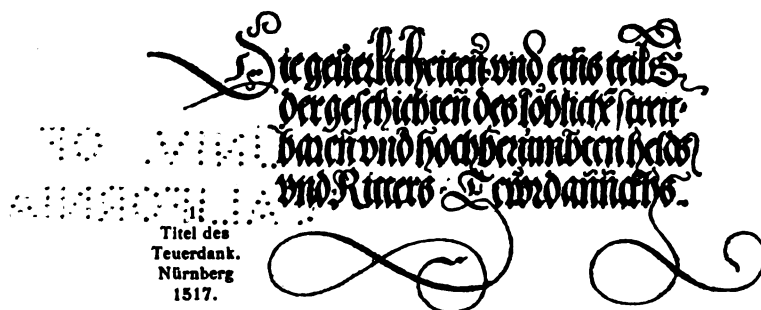 Die geüerlicheiten vnd eins teils
der geschichten des loblichen streit-
baren vnd hochberümbten helds
vnd Ritters Tewrdannckhs.
UNIV. OF
CALIFORNIA
1.
Titel des
Teuerdank.
Nürnberg
1517.